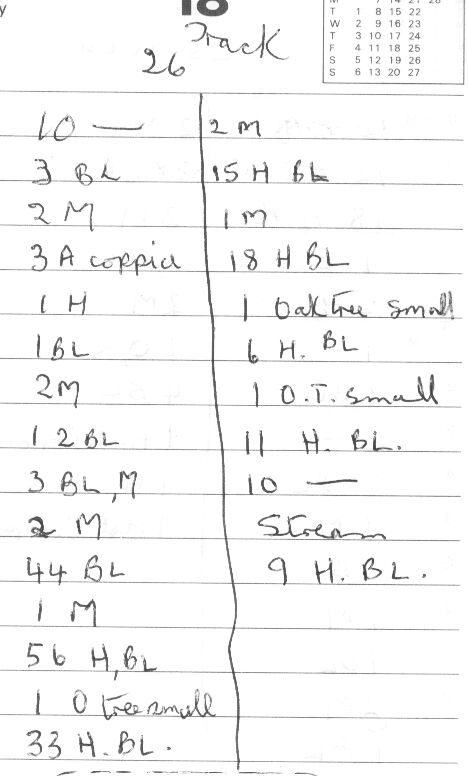 y
18
M 7 14 21 28
T 1 8 15 22
W 2 9 16 23
T 3 10 17 24
F 4 11 18 25
S 5 12 19 26
S 6 13 20 27
Track
26
10 —
3 BL
2 M
3 A coppice
1 H
1 BL
2M
12 BL
3 BL, M
2 M
44 BL
1 M
56 H, BL
1 O tree small
33 H. BL.
2 M
15 H BL
1 M
18 H BL
1 Oak tree small
6 H. BL
1 O.T. small
11 H. BL.
10 —
Stream
9 H. BL.